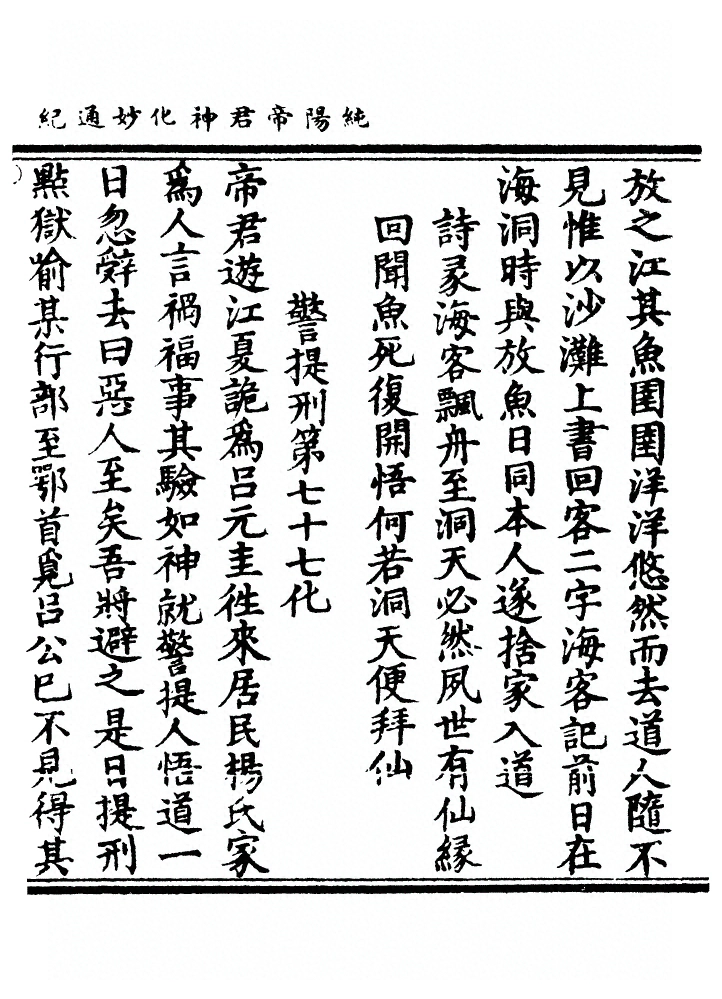 純陽帝君神化妙通紀
放之江其魚圉圉洋洋悠然而去道人隨不
見惟以沙灘上書回客二字海客記前日在
海洞時與放魚日同本人遂捨家入道
詩彔海客飄舟至洞天必然夙世有仙緣
回聞魚死復開悟何若洞天便拜仙
警提刑第七十七化
帝君遊江夏詭爲呂元圭徃來居民楊氏家
爲人言禍福事其驗如神就警提人悟道一
日忽辭去曰惡人至矣吾將避之是日提刑
點獄喻某行部至鄂首覓呂公已不見得其